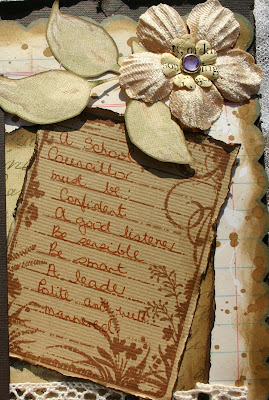 A School
Councillor
must be:
Confident
A good listener
Be sensible
Be smart
A leader
Polite and well
Mannered